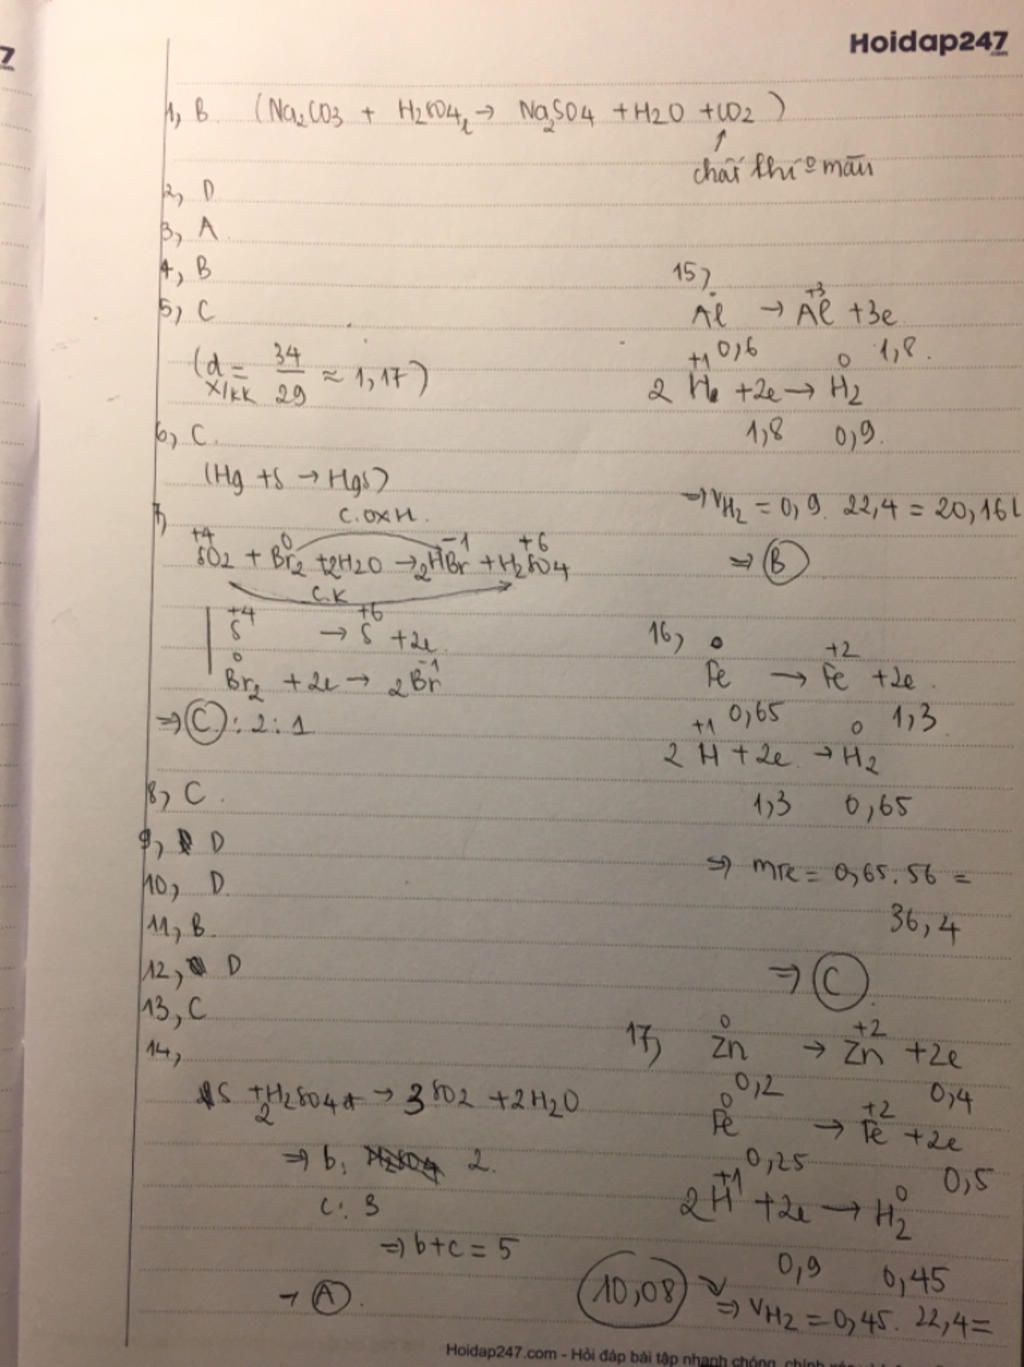 7
Hoidap247
1, B (Na2CO3 + H2SO4 → Na2SO4 + H2O + CO2)
↑
chất khí 0 màu
2, D
3, A
4, B
5, C
(d X/KK = 34/29 ≈ 1,17)
6, C.
(Hg + S → HgS)
7,
C.OXH.
+4 0 -1 +6
SO2 + Br2 + 2H2O → 2HBr + H2SO4
C.K
+4 +6
S → S + 2e
0 -1
Br2 + 2e → 2Br
⇒ C : 2 : 1
8, C.
9, D
10, D
11, B
12, D
13, C
14,
S + 2H2SO4 → 3SO2 + 2H2O
⇒ b: 2.
c: 3
⇒ b + c = 5
→ A.
15,
+3
Al → Al + 3e
0,6 1,8.
+1 0
2 H + 2e → H2
1,8 0,9.
⇒ VH2 = 0,9. 22,4 = 20,16l
⇒ B
16,
0 +2
Fe → Fe + 2e.
0,65 1,3
+1 0
2 H + 2e. → H2
1,3 0,65
⇒ mFe = 0,65. 56 =
36,4
⇒ C.
17,
0 +2
Zn → Zn + 2e
0,2 0,4
0 +2
Fe → Fe + 2e
0,25 0,5
+1 0
2H + 2e → H2
0,9 0,45
10,08 ⇒ VH2 = 0,45. 22,4 =
Hoidap247.com - Hỏi đáp bài tập nhanh chóng, chính